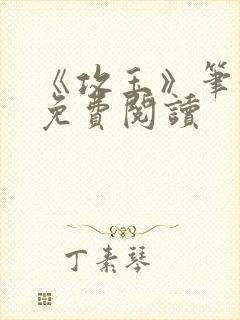 《攻玉》笔
免費閱讀
丁素琴